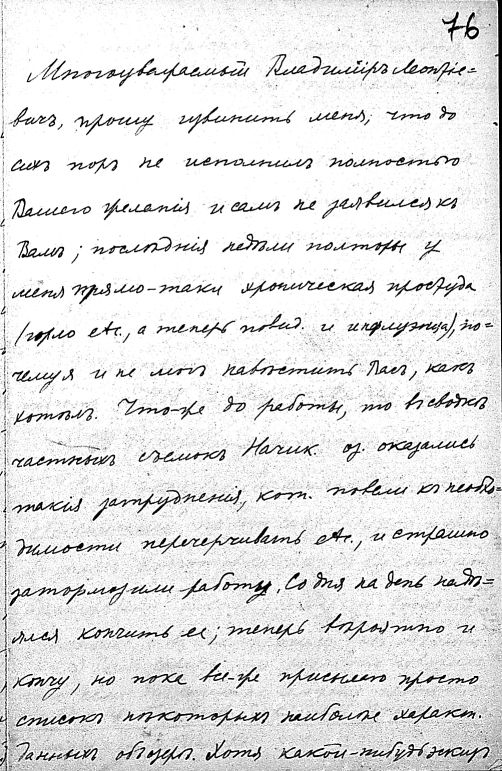 76
Многоуважаемый Владимiръ Леонтiе=
вичъ, прошу извинить меня, что до
сихъ поръ не исполнилъ полностью
Вашего желанiя и самъ не заявился къ
Вамъ; последнiя недѣли полторы у
меня прямо-таки хроническая простуда
(горло etc., а теперь повид. и инфлуэнца), по=
чему я и не могъ навѣстить Васъ, какъ
хотѣлъ. Что-же до работы, то въ сводкѣ
частныхъ съемокъ Начик. оз. оказались
такiя затрудненiя, кот. повели къ необхо=
димости перечерчивать etc., и страшно
затормозили работу. Со дня на день надѣ=
ялся кончить ее; теперь вѣроятно и
кончу, но пока все-же присылаю просто
списокъ нѣкоторыхъ наиболѣе характ.
данныхъ объ озерѣ. Хотя какой-нибудь эскизъ